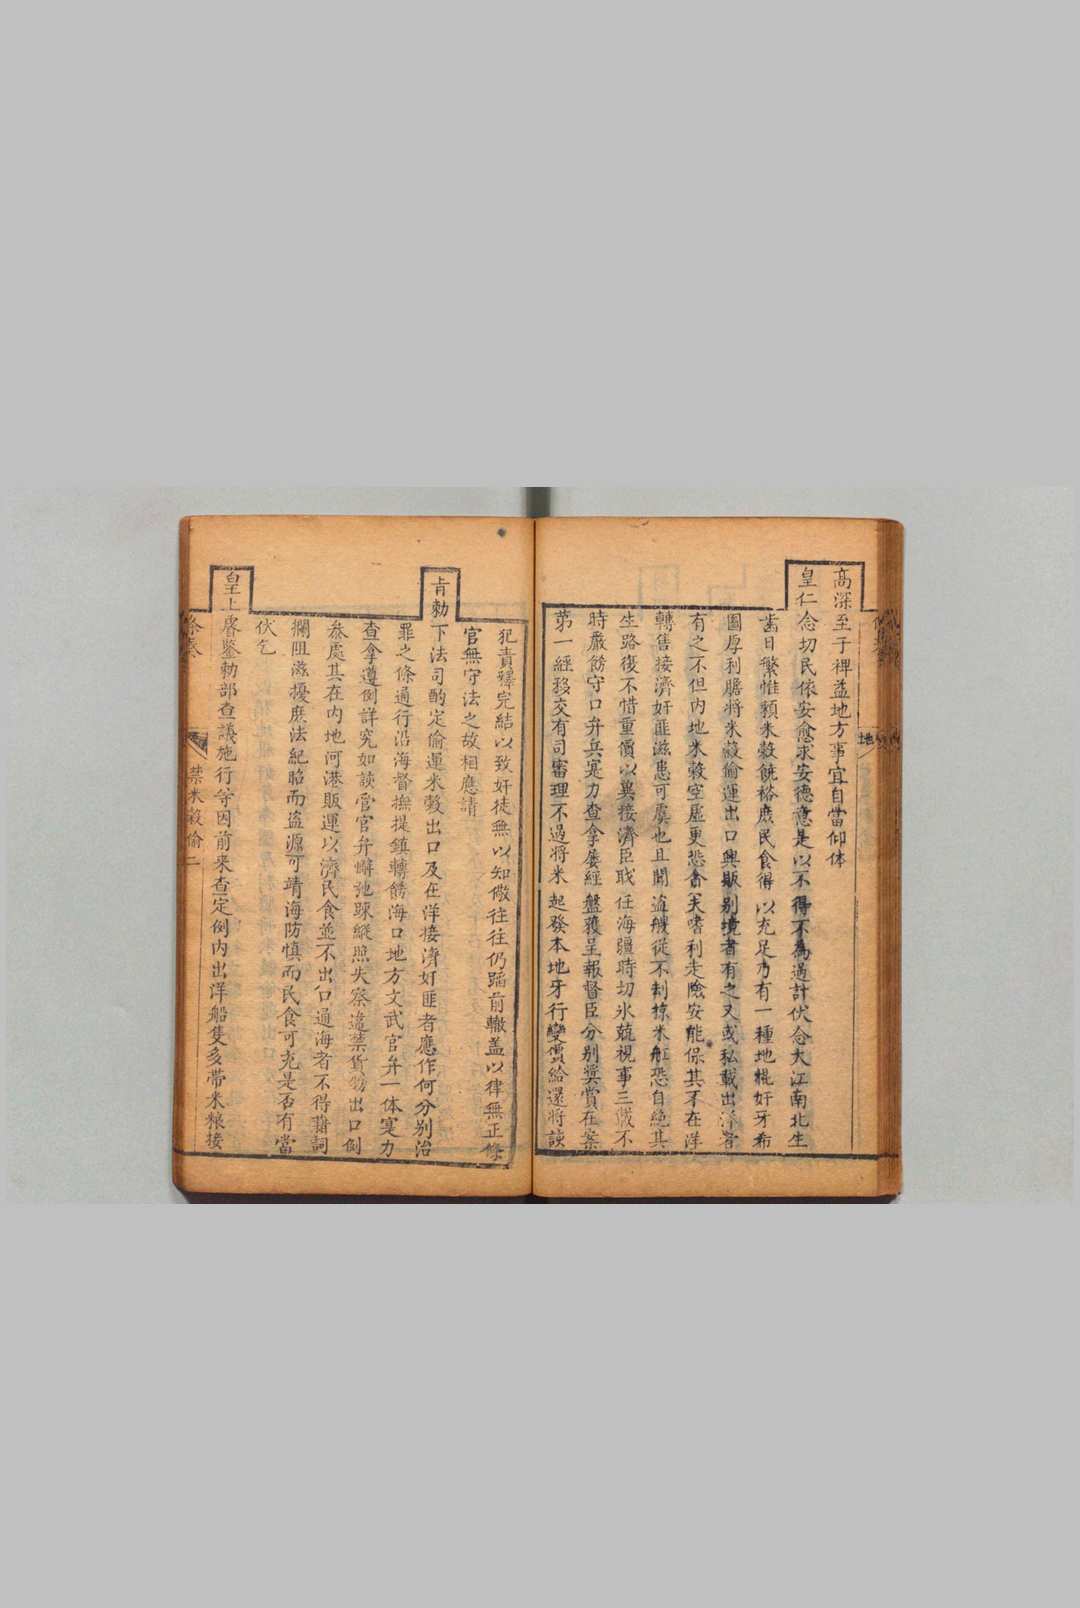 高深至于裨益地方事宜自當仰体
皇仁念切民依安愈求安德意是以不得不為過計伏念大江南北生
齒日繁惟頼米穀饒裕庶民食得以充足乃有一種地棍奸牙希
圖厚利膽將米穀偷運出口興販別境者有之又或私載出洋者
有之不但内地米穀空虛更恐貪嗜利走險安能保其不在洋
轉售接濟奸匪滋患可虞也且聞盜艘從不刦掠米船恐自絕其
生路復不惜重價以冀接濟臣耽任海疆時切氷兢視事三載不
時嚴飭守口弁兵寔力查拿屡經盤獲呈報督臣分別奨賞在案
第一經移交有司審理不過將米起發本地牙行變價給還將該
犯責釋完結以致奸徒無以知儆往往仍蹈前轍盖以律無正條
官無守法之故相應請
旨勅下法司酌定偷運米穀出口及在洋接濟奸匪者應作何分別治
罪之條通行沿海督撫提鎮轉飭海口地方文武官弁一体寔力
查拿遵例詳究如該管官弁懈弛踈縱照失察違禁貨物出口例
叅處其在内地河港販運以濟民食並不出口通海者不得藉詞
攔阻滋擾庶法紀昭而盗源可靖海防慎而民食可充是否有當
伏乞
皇上睿鑒勅部查議施行等因前来查定例内出洋船隻多帶米粮接
條奏
禁米穀偷 二